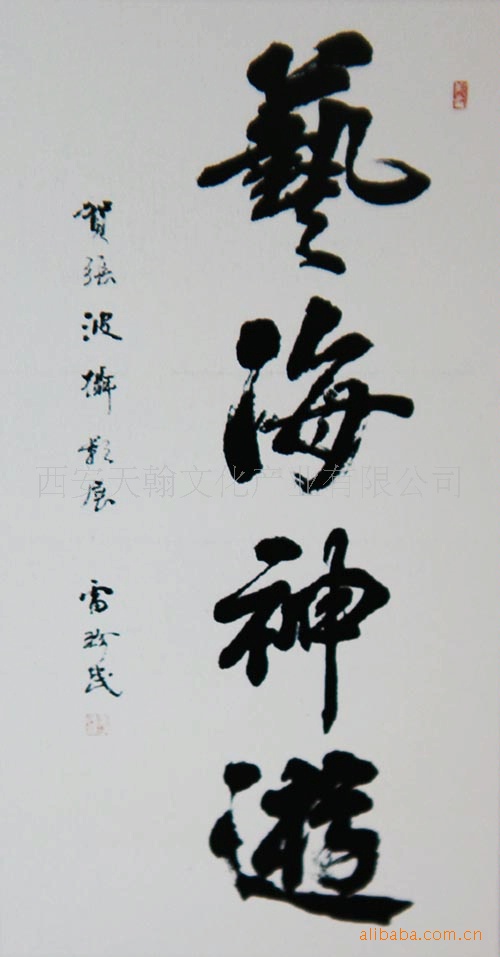 藝海神遊
賀張波攝影展
雷珍民
西安天翰文化产业有限公司
alibaba.com.cn